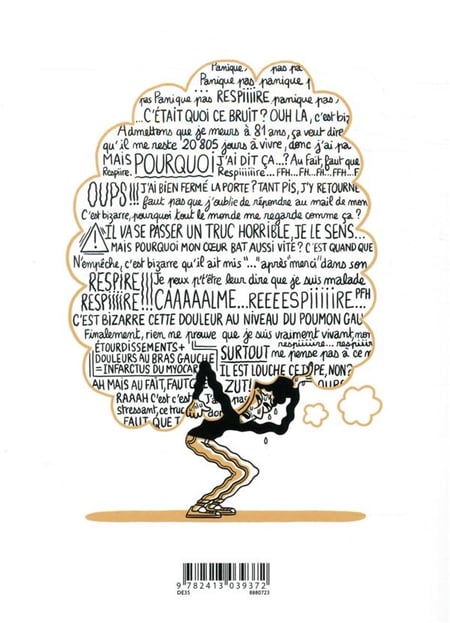 Panique, pas pa
Panique pas panique p
pas Panique pas RESPIIIIRE panique pas,
...C'ÉTAIT QUOI CE BRUIT? OUH LA, C'EST BIZ
Admettons que je meurs à 81 ans, ça veut dire
qu'il me reste 20805 jours à vivre, donc j'ai pa
MAIS POURQUOI J'AI DIT ÇA...? Au fait, faut que
Respire. Respiiiiiire... FFH... FH...FFH... F
OUPS!!! J'AI BIEN FERMÉ LA PORTE? TANT PIS, J'Y RETOURNE
faut pas que j'oublie de répondre au mail de mon
C'est bizarre, pourquoi tout le monde me regarde comme ça?
IL VA SE PASSER UN TRUC HORRIBLE, JE LE SENS...
MAIS POURQUOI MON CŒUR BAT AUSSI VITE? C'EST QUAND QUE
N'empêche, c'est bizarre qu'il ait mis "..." après "merci" dans son
RESPIRE!!! Je peux p't'être leur dire que je suis malade
RESPIIIIRE!!! CAAAAALME...REEEESPIIIIIRE... PFH
C'EST BIZARRE CETTE DOULEUR AU NIVEAU DU POUMON GAU
Finalement, rien me prouve que je suis vraiment vivant, mon
ÉTOURDISSEMENTS+ respiiiiire... respiiire
DOULEURS AU BRAS GAUCHE SURTOUT me pense pas à ce m
= INFARCTUS DU MYOCAR IL EST LOUCHE CE TYPE, NON?
AH MAIS AU FAIT, FAUT QUE ZUT! OUPS
RAAAH C'est c'est J' pas
stressant, ce truc don
FAUT QUE T
9 782413 039372
DE35 8880723